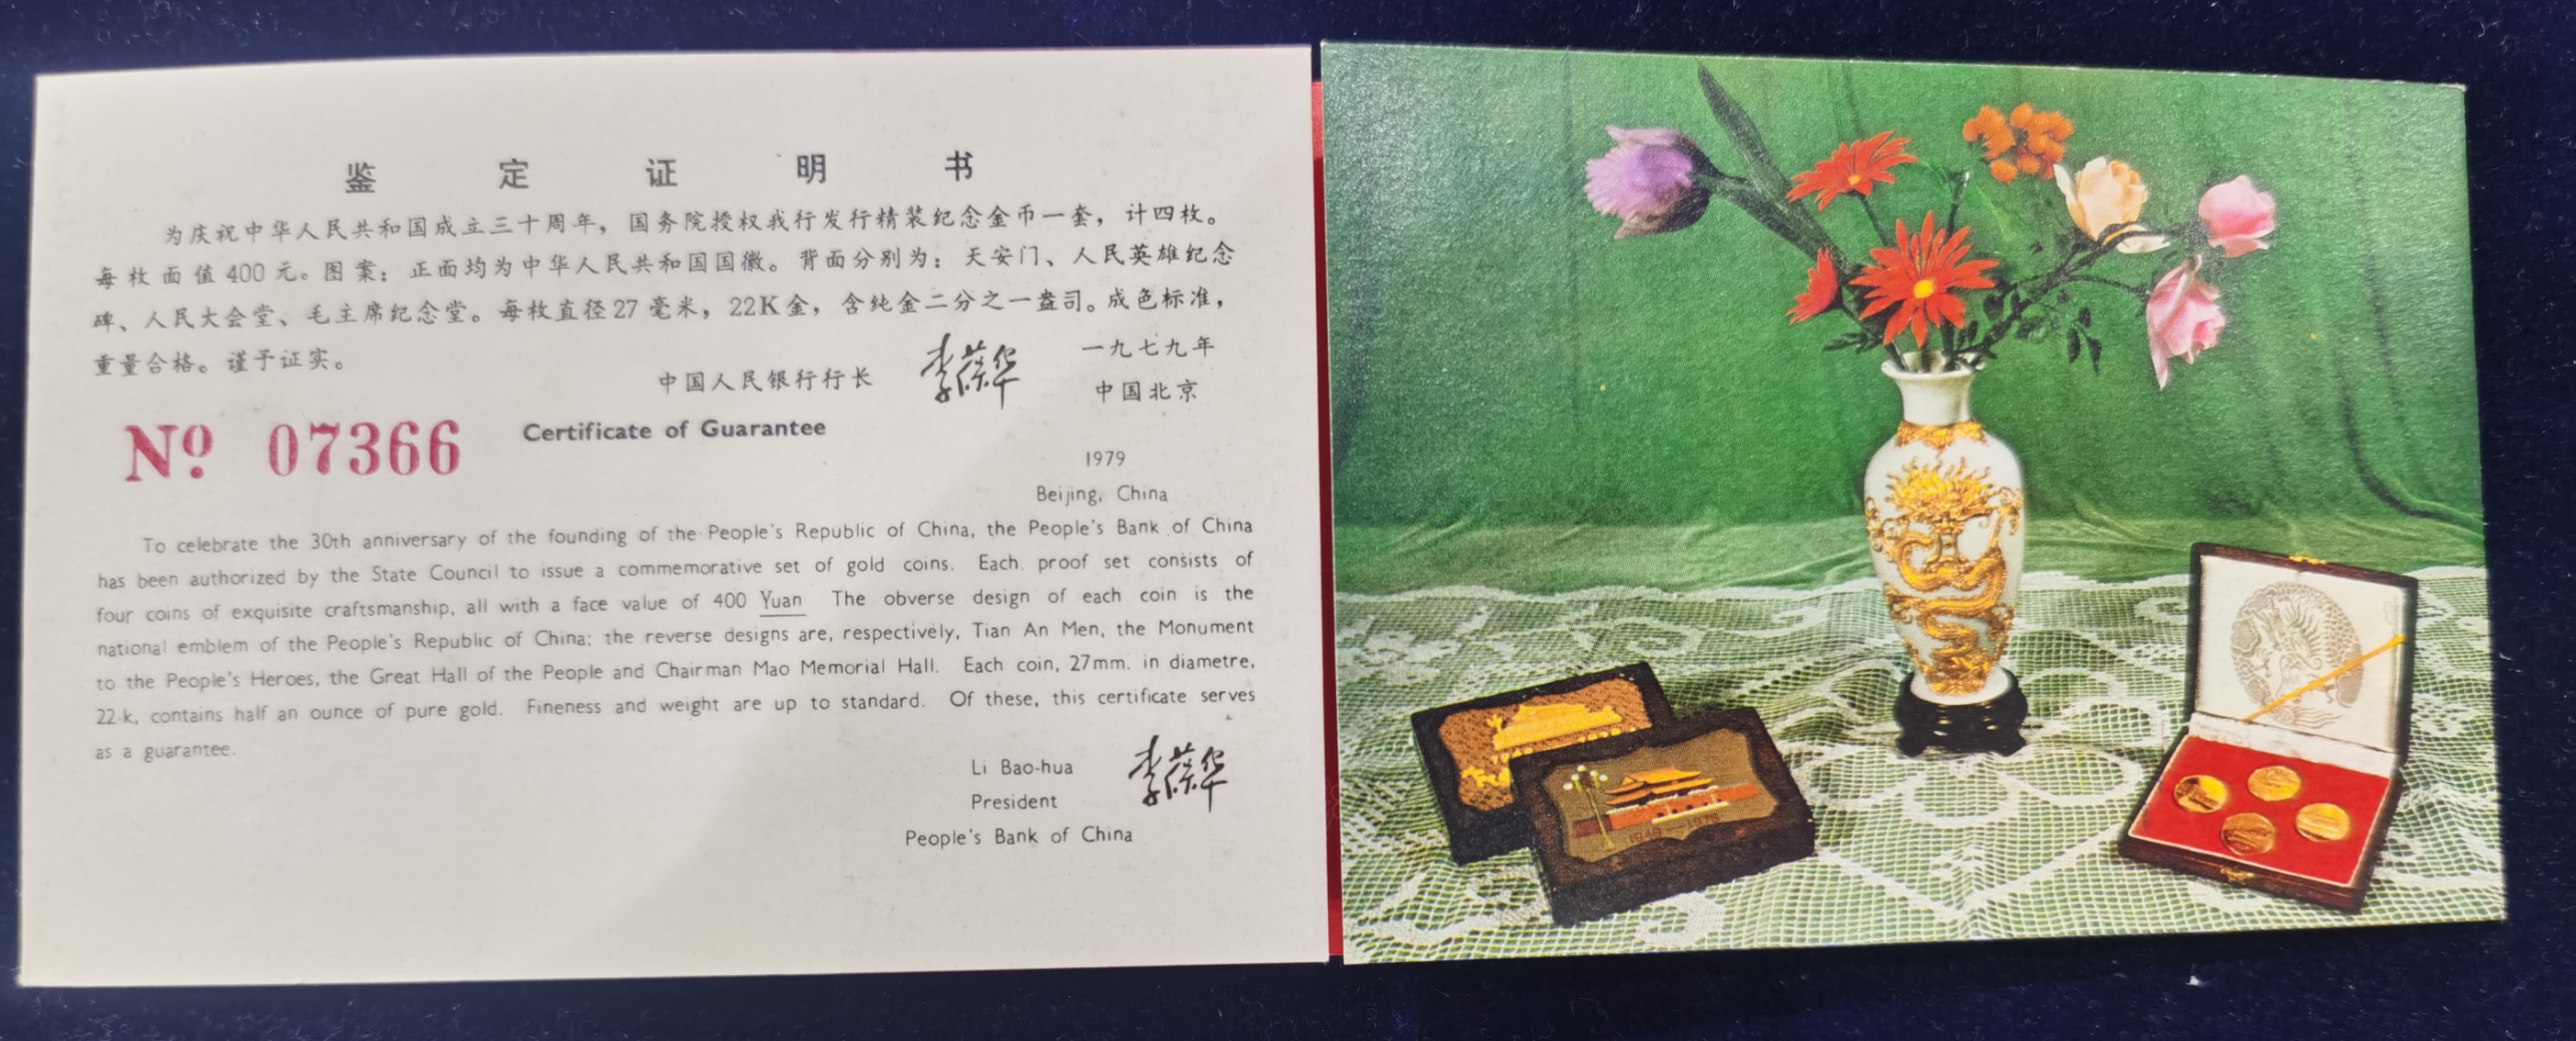 鉴定证明书
为庆祝中华人民共和国成立三十周年，国务院授权我行发行精装纪念金币一套，计四枚。
每枚面值400元。图案：正面均为中华人民共和国国徽。背面分别为：天安门、人民英雄纪念
碑、人民大会堂、毛主席纪念堂。每枚直径27毫米，22K金，含纯金二分之一盎司。成色标准，
重量合格。谨予证实。
中国人民银行行长 李葆华
一九七九年
中国北京
Nº 07366
Certificate of Guarantee
1979
Beijing, China
To celebrate the 30th anniversary of the founding of the People's Republic of China, the People's Bank of China
has been authorized by the State Council to issue a commemorative set of gold coins. Each proof set consists of
four coins of exquisite craftsmanship, all with a face value of 400 Yuan The obverse design of each coin is the
national emblem of the People's Republic of China; the reverse designs are, respectively, Tian An Men, the Monument
to the People's Heroes, the Great Hall of the People and Chairman Mao Memorial Hall. Each coin, 27mm. in diametre,
22-k, contains half an ounce of pure gold. Fineness and weight are up to standard. Of these, this certificate serves
as a guarantee.
Li Bao-hua 李葆华
President
People's Bank of China
1949—1979